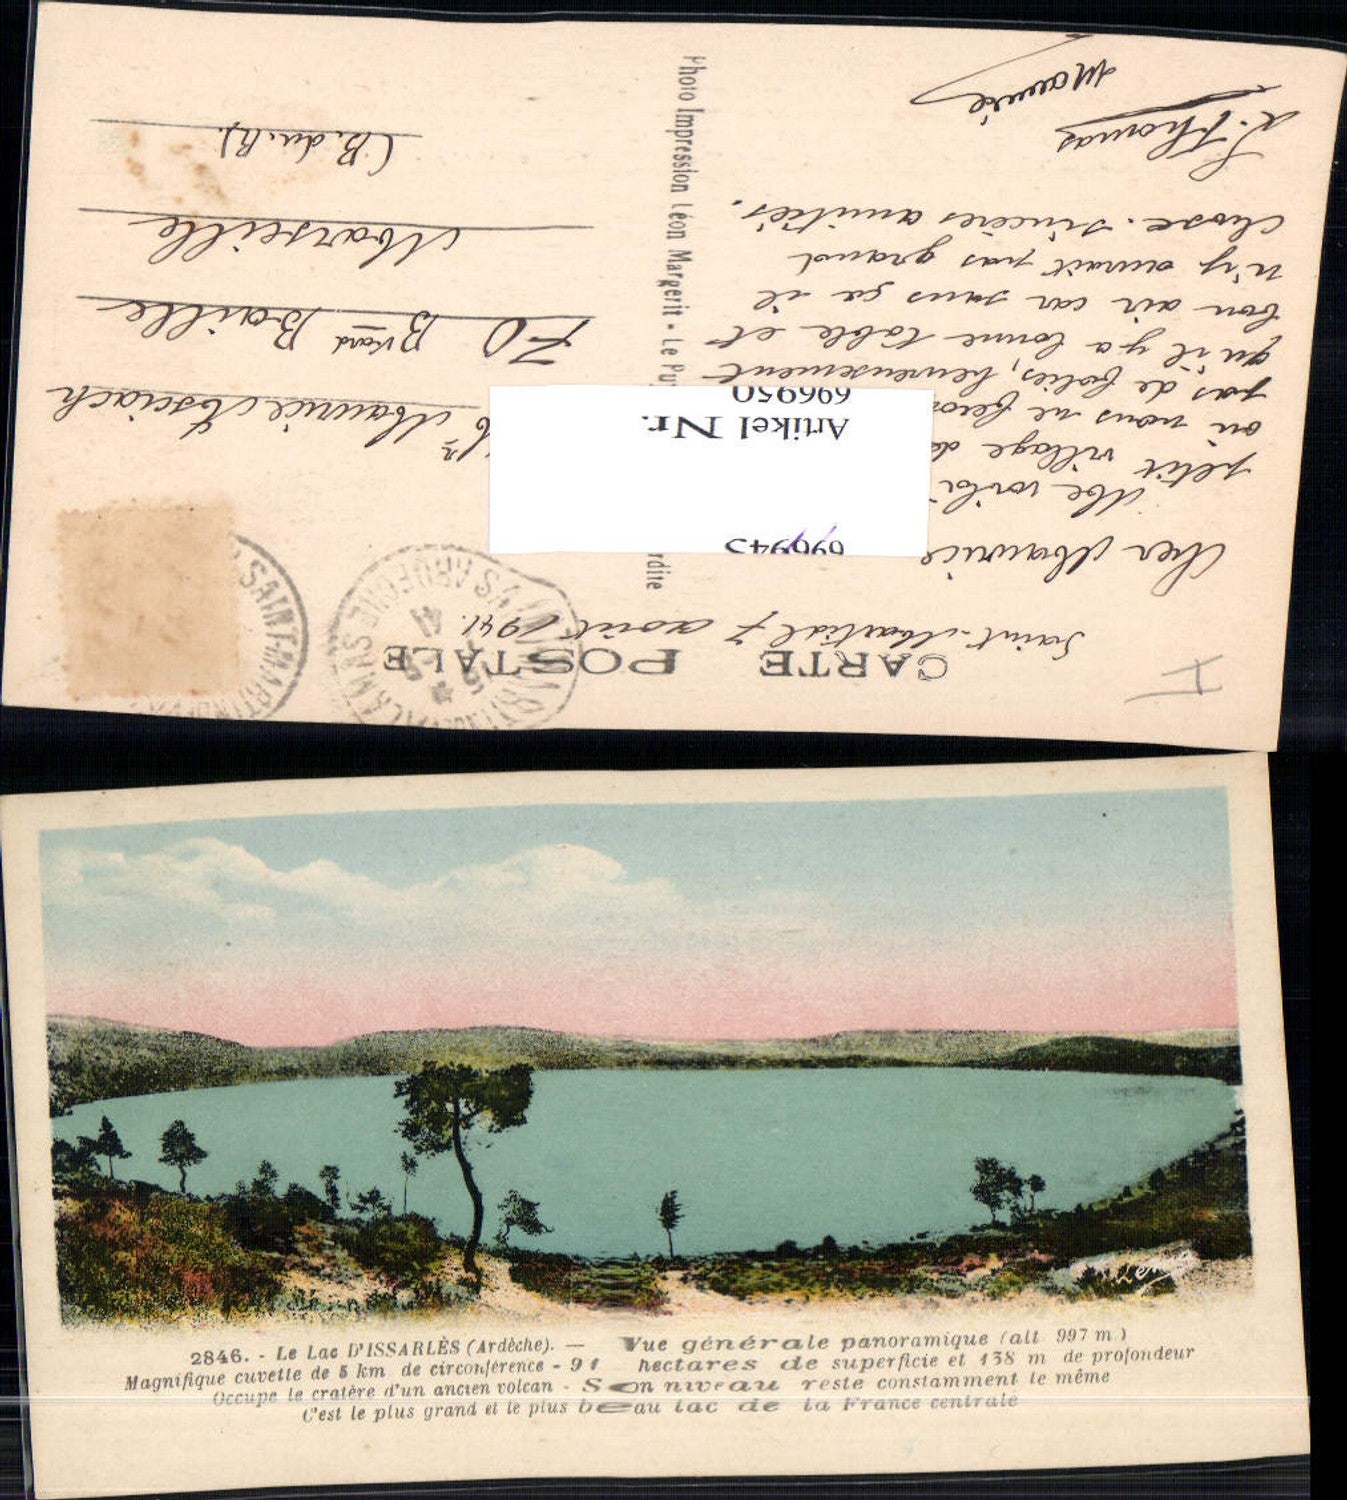 CARTE POSTALE
Saint-Martial 7 août 1941.
Cher Maurice
Me voilà
petit village
où nous ne
pas de folies, heureusement
qu'il y a bonne table et
bon air car sans ça il
n'y aurait pas grand
chose. Sincères amitiés.
L. Thomas
Maurice
Photo Impression Léon Margerit - Le Puy
rdite
Mr Maurice
70 Bvard Baille
Marseille
(B.du.R).
SAINT-MARTIN-DE-VALAMAS
SAINT-MARTIN-DE-VALAMAS ARDECHE
696945
Artikel Nr.
696950
2846. - Le Lac D'ISSARLÈS (Ardèche). — Vue générale panoramique (alt 997 m)
Magnifique cuvette de 5 km de circonférence - 91 hectares de superficie et 138 m de profondeur
Occupe le cratère d'un ancien volcan - Son niveau reste constamment le même
C'est le plus grand et le plus beau lac de la France centrale